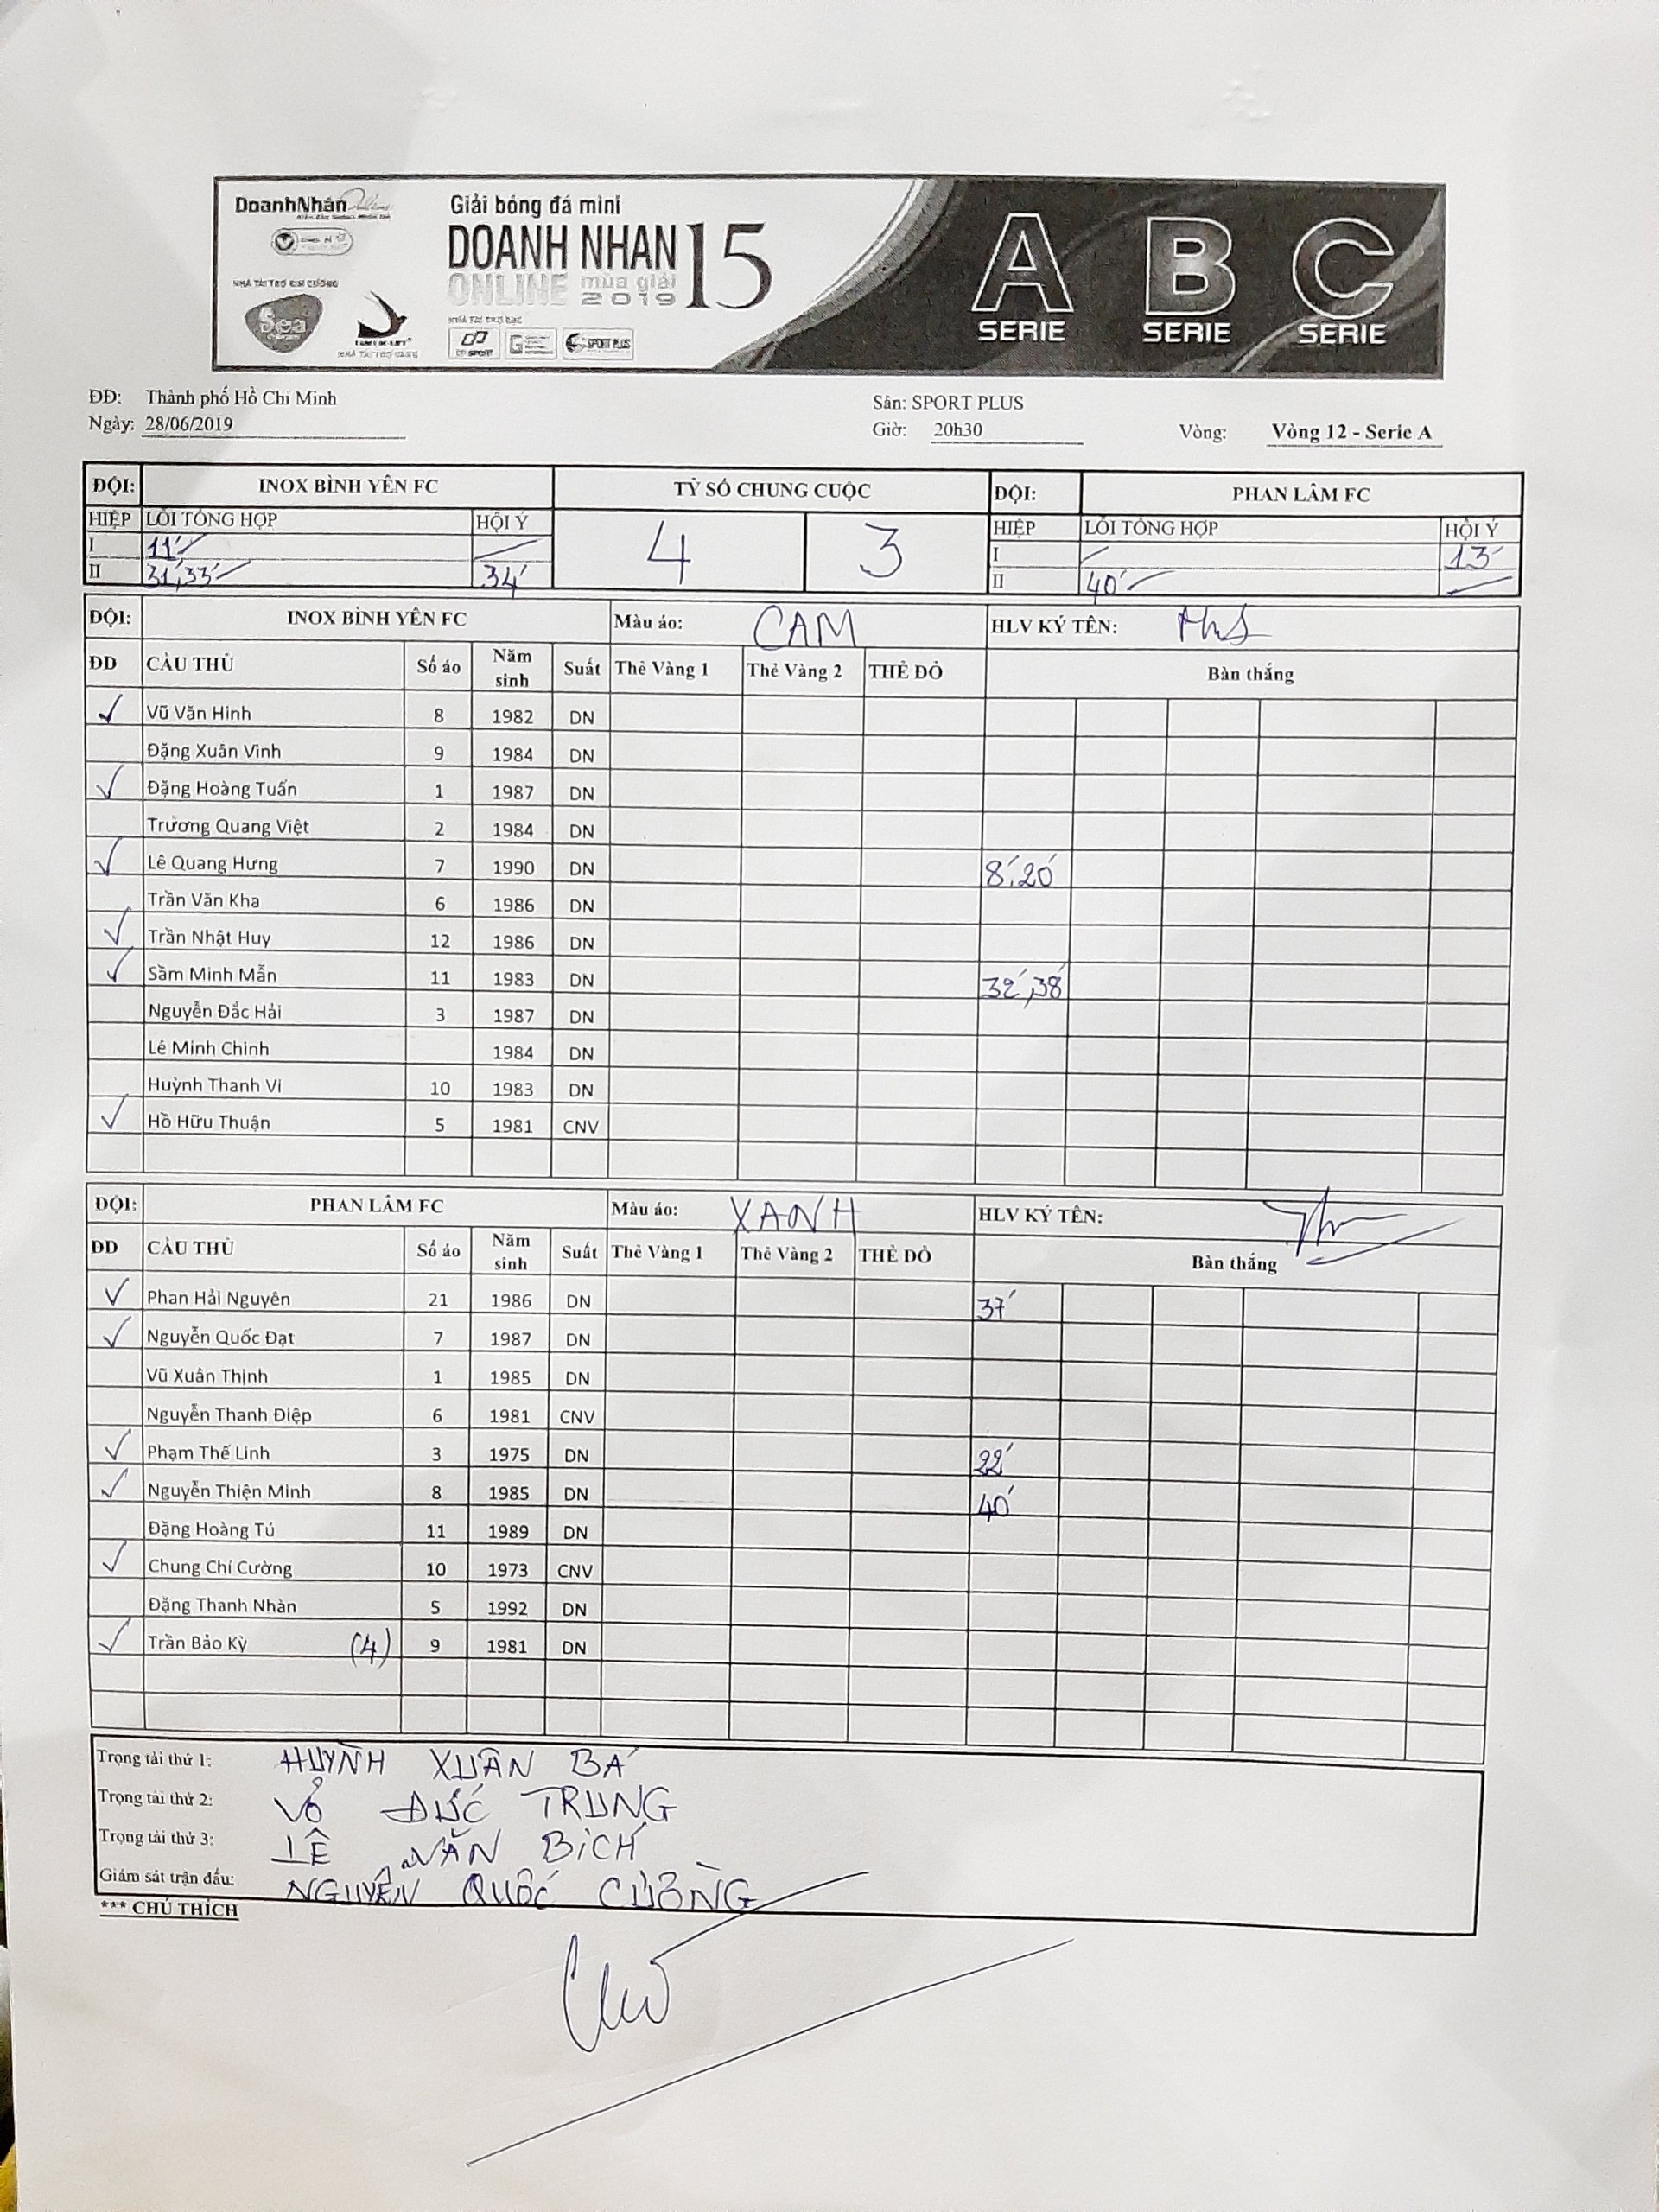 DoanhNhân
NHÀ TÀI TRỢ KIM CƯƠNG
Sea
NHÀ TÀI TRỢ VÀNG
Giải bóng đá mini
DOANH NHAN 15
ONLINE mùa giải 2019
NHÀ TÀI TRỢ BẠC
SPORT PLUS
A B C
SERIE SERIE SERIE
ĐĐ: Thành phố Hồ Chí Minh Sân: SPORT PLUS
Ngày: 28/06/2019 Giờ: 20h30 Vòng: Vòng 12 - Serie A
ĐỘI: INOX BÌNH YÊN FC TỶ SỐ CHUNG CUỘC ĐỘI: PHAN LÂM FC
HIỆP LỖI TỔNG HỢP HỘI Ý 4 3 HIỆP LỖI TỔNG HỢP HỘI Ý
I 11' I 13'
II 31', 33' 34' II 40'
ĐỘI: INOX BÌNH YÊN FC Màu áo: CAM HLV KÝ TÊN:
DD CẦU THỦ Số áo Năm sinh Suất Thẻ Vàng 1 Thẻ Vàng 2 THẺ ĐỎ Bàn thắng
✓ Vũ Văn Hinh 8 1982 DN
Đặng Xuân Vinh 9 1984 DN
✓ Đặng Hoàng Tuấn 1 1987 DN
Trương Quang Việt 2 1984 DN
✓ Lê Quang Hưng 7 1990 DN 8', 20'
Trần Văn Kha 6 1986 DN
✓ Trần Nhật Huy 12 1986 DN
✓ Sầm Minh Mẫn 11 1983 DN 32', 38'
Nguyễn Đắc Hải 3 1987 DN
Lê Minh Chinh 1984 DN
Huỳnh Thanh Vi 10 1983 DN
✓ Hồ Hữu Thuận 5 1981 CNV
ĐỘI: PHAN LÂM FC Màu áo: XANH HLV KÝ TÊN:
DD CẦU THỦ Số áo Năm sinh Suất Thẻ Vàng 1 Thẻ Vàng 2 THẺ ĐỎ Bàn thắng
✓ Phan Hải Nguyên 21 1986 DN 37'
✓ Nguyễn Quốc Đạt 7 1987 DN
Vũ Xuân Thịnh 1 1985 DN
Nguyễn Thanh Điệp 6 1981 CNV
✓ Phạm Thế Linh 3 1975 DN 22'
✓ Nguyễn Thiện Minh 8 1985 DN 40'
Đặng Hoàng Tú 11 1989 DN
✓ Chung Chí Cường 10 1973 CNV
Đặng Thanh Nhàn 5 1992 DN
✓ Trần Bảo Kỳ (4) 9 1981 DN
Trọng tài thứ 1: HUỲNH XUÂN BÁ
Trọng tài thứ 2: VÕ ĐỨC TRUNG
Trọng tài thứ 3: LÊ VĂN BÍCH
Giám sát trận đấu: NGUYỄN QUỐC CƯỜNG
*** CHÚ THÍCH